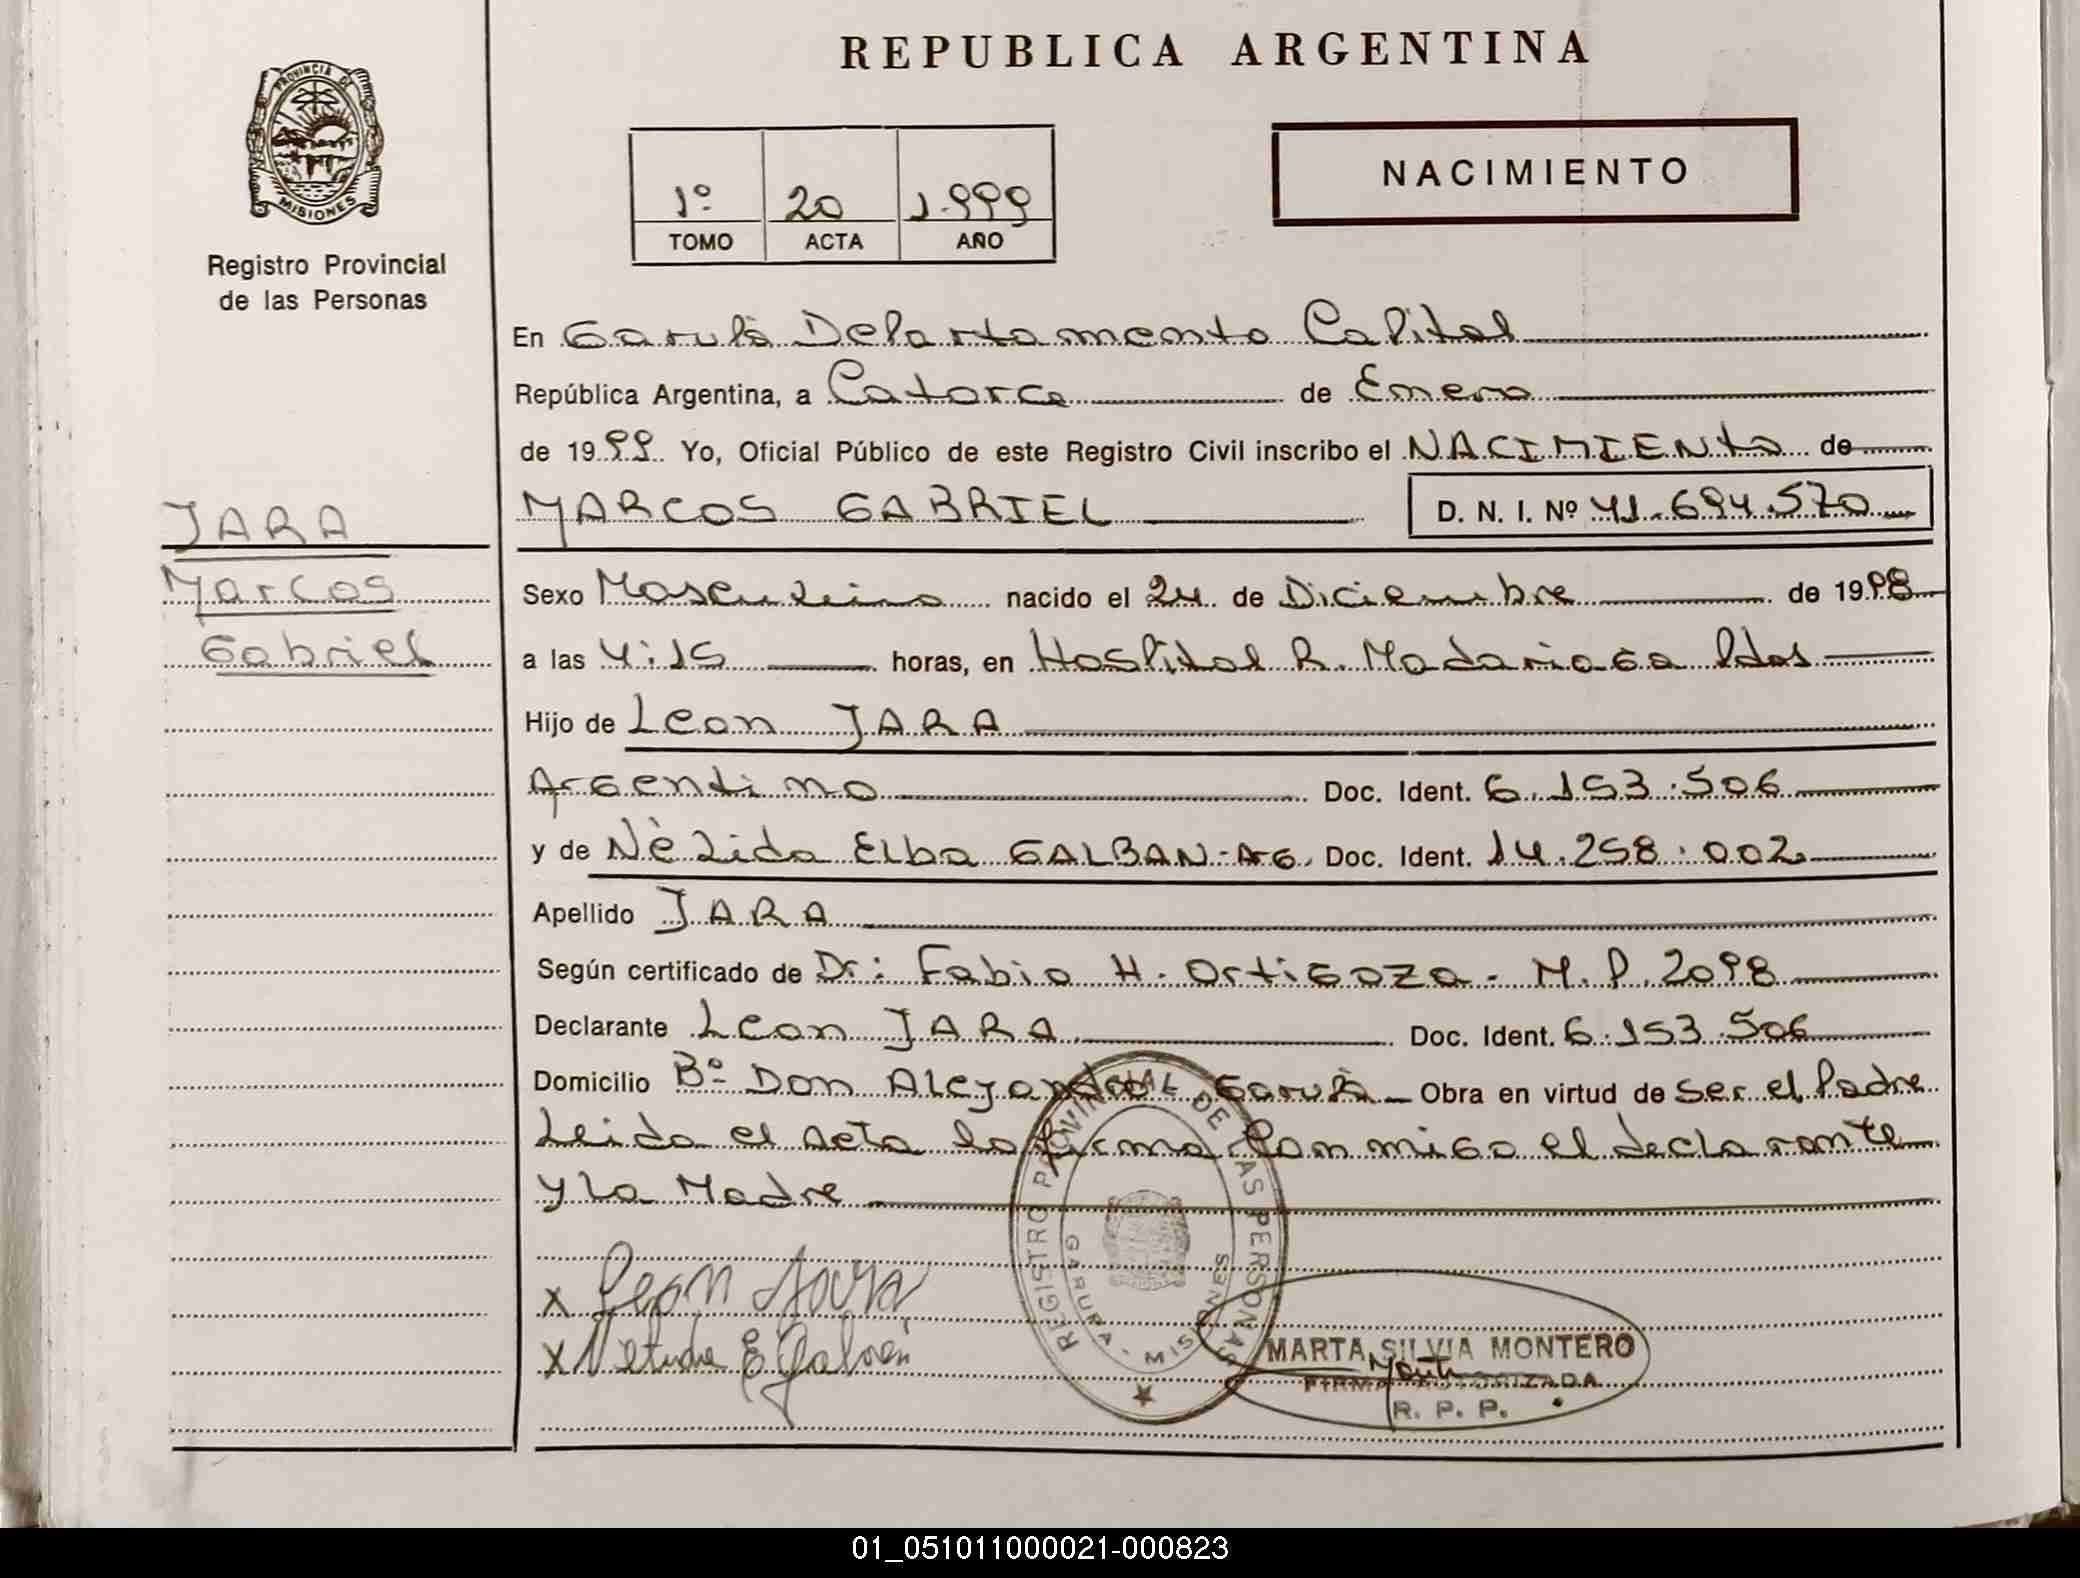 REPUBLICA ARGENTINA
PROVINCIA DE
MISIONES
Registro Provincial
de las Personas
1º 20 1.999
TOMO ACTA AÑO
NACIMIENTO
En Garupá Departamento Capital
República Argentina, a Catorce de Enero
de 1999 Yo, Oficial Público de este Registro Civil inscribo el NACIMIENto de
JARA
MARCOS GABRIEL D. N. I. Nº 41.694.570
Marcos
Gabriel
Sexo Masculino nacido el 24 de Diciembre de 1998
a las 4:15 horas, en Hospital R. Madariaga Pdas
Hijo de Leon JARA
Argentino Doc. Ident. 6.153.506
y de Nèlida Elba GALBAN-Arg. Doc. Ident. 14.258.002
Apellido JARA
Según certificado de Dr: Fabio H. Ortigoza - M.P. 2098
Declarante Leon JARA Doc. Ident. 6.153.506
Domicilio Bº Don Alejandro Garupá Obra en virtud de ser el Padre
Leida el Acta la firma Conmigo el declarante
y la Madre
REGISTRO PROVINCIAL DE LAS PERSONAS
GARUPA - MISIONES
x Leon Jara
x Nelida E Galván
MARTA SILVIA MONTERO
FIRMA AUTORIZADA
R. P. P.
01_051011000021-000823